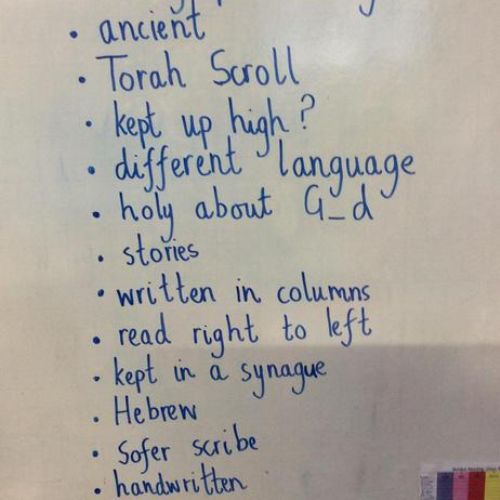 • ancient
• Torah Scroll
• kept up high?
• different language
• holy about G_d
• stories
• written in columns
• read right to left
• kept in a synague
• Hebrew
• Sofer scribe
• handwritten